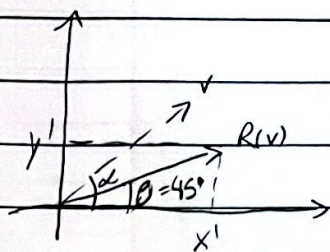 v
y' R(v)
α β=45°
x'